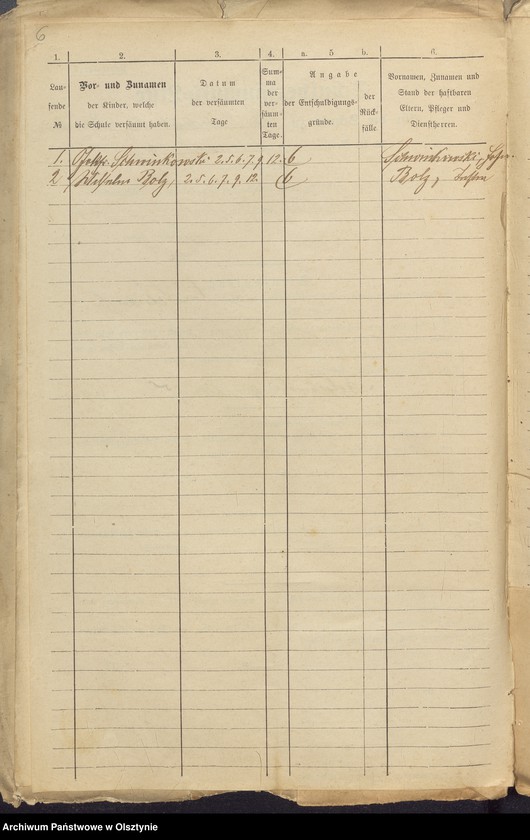 6
1. 2. 3. 4. a. 5 b. 6.
Lau-
fende
№
Vor- und Zunamen
der Kinder, welche
die Schule versäumt haben.
Datum
der versäumten
Tage
Sum-
ma
der
ver-
säum-
ten
Tage.
Angabe
der Entschuldigungs-
gründe.
der
Rück-
fälle
Vornamen, Zunamen und
Stand der haftbaren
Eltern, Pfleger und
Dienstherren.
1. Schwinkowski 2. 5. 6. 7. 9. 12. 6 Schwinkowski,
2 Wilhelm Bolz, 2. 5. 6. 7. 9. 12. 6 Bolz,
Archiwum Państwowe w Olsztynie